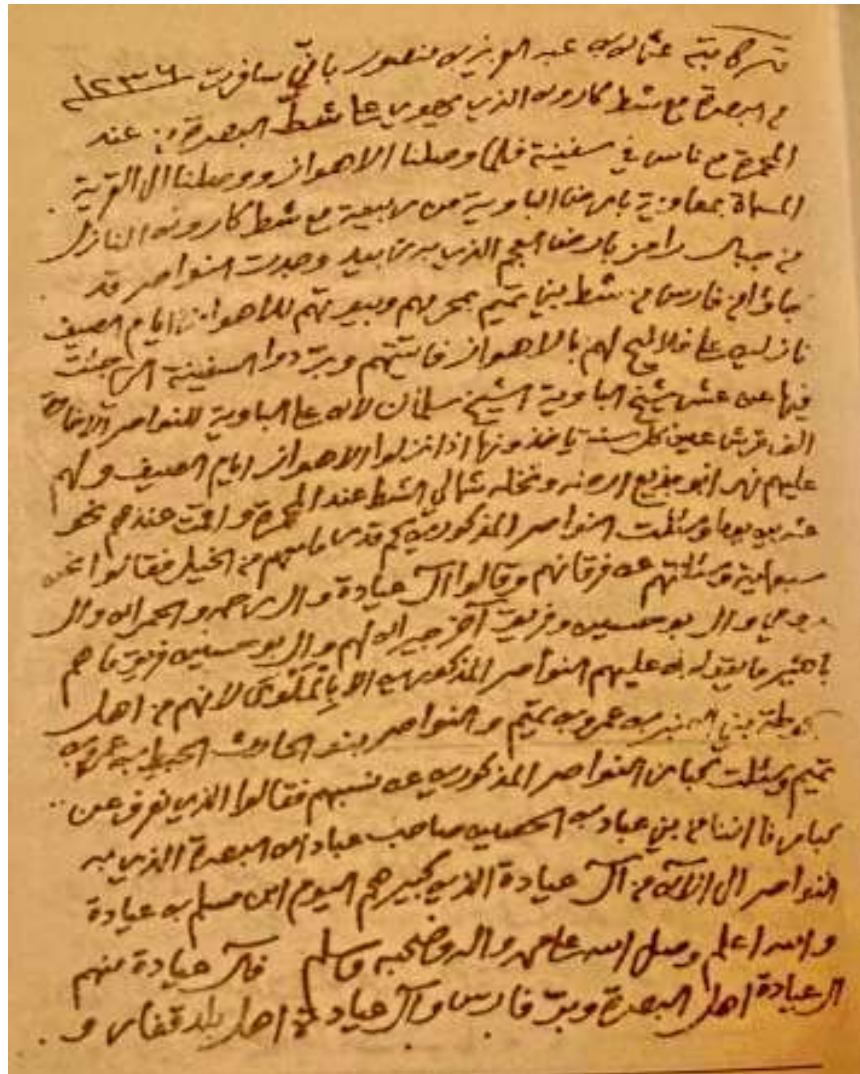 قد كاتبة عثمان بن عبد العزيز بن منصور بأني سافرت ١٢٣٦
من البصرة مع شط كارون الذي يهوي على شط البصرة من عند
المحمرة مع ناس في سفينة فلما وصلنا الاهواز ووصلنا الى القرية
المسماة بمعاوية بارض الباوية من ربيعة مع شط كارون النازل
من جبال رامز بارض العجم الذي وجدت النواصر قد
جاؤا من فارس من شط بني تميم وبيوتهم للاهواز ايام الصيف
نازلين على فلاليح لهم بالاهواز فاتيتهم السفينة التي جئت
فيها عند شيخ الباوية الشيخ سلمان لان على الباوية للنواصر ثلاثة
الف قرش عين كل سنة ياخذونها اذا نزلوا الاهواز ايام الصيف ولهم
عليهم نهر ابو جذيع ارضه ونخله شمالي الشط عند المحمرة واقمت عندهم نحو
عشرين يوما وسئلت النواصر المذكورين كم قدر ما معهم من الخيل فقالوا نحو
سبعماية وسئلتهم عن فرقانهم وقالوا آل عيادة وال رحمه والحمران وال
وال بو حسين وفريق آخر جيران لهم وال بو حسين فريق ما هم
باكثير ما يقوله عليهم النواصر المذكورين الا لانهم من اهل
بني العنبر بن عمرو بن تميم والنواصر بنو الحارث الحبط بن عمرو بن
تميم وسئلت كبار النواصر المذكورين عن نسبهم فقالوا الذي نعرف عن
كبارنا اننا من بني عباد بن الحصين صاحب عبادان البصرة الذي به
النواصر الى الآن من آل عيادة الذين كبيرهم اليوم ابن مسلم بن عيادة
والله اعلم وصلى الله على محمد واله وصحبه وسلم فآل عيادة منهم
ال عيادة اهل البصرة وبر فارس وآل عيادة اهل بلد قفار و